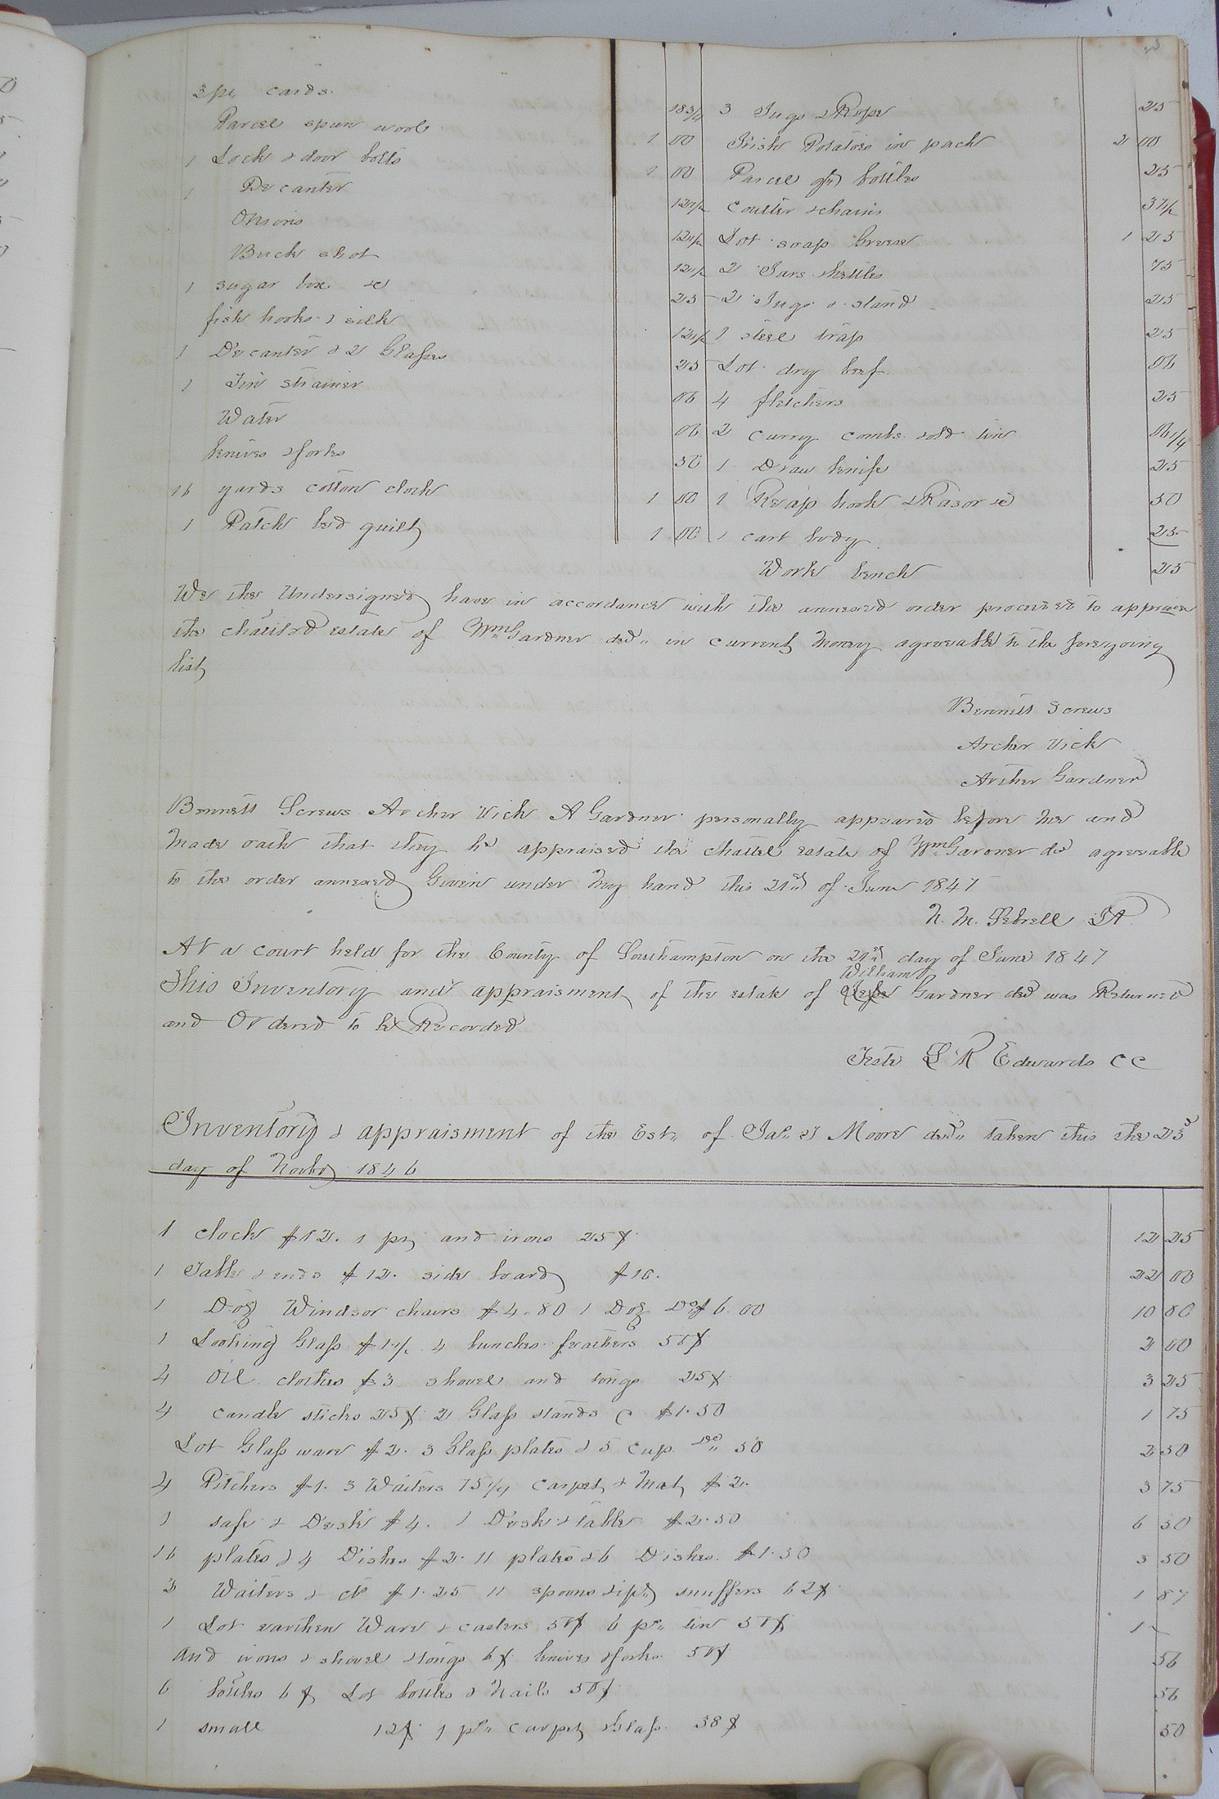 3 pr cards 18 3/4
Parcel spun wool 1 00
1 Lock & door bolts 00
1 Decanter 12 1/2
Onions 12 1/2
Buck shot 12 1/2
1 sugar box &c 25
fish hooks & silk 12 1/2
1 Decanter & 2 Glasses 25
1 Tin strainer 06
Water 06
knives & forks 50
16 yards cotton cloth 1 00
1 Patch bed quilt 1 00
3 Jugs & Rope 25
Irish Potatoes in pach 2 00
Parcel of bottles 25
Coulter & chains 37 1/2
Lot soap Grease 1 25
2 Jars & kettles 75
2 Jugs & stand 25
1 steel trap 25
Lot dry beef 06
4 fletchers 25
2 curry combs & old tin 06 1/4
1 Draw knife 25
1 Reap hook & Razor &c 50
1 cart body 25
Work bench 25
We the Undersigned have in accordance with the annexed order proceeded to appraise
the chattled estate of Wm Gardner decd in current Money agreeable to the foregoing
list
Bennett Screws
Archer Vick
Arther Gardner
Bennett Screws Archer Vick A Gardner personally appeared before me and
Made oath that they hd appraised the chattel estate of Wm Gardner dcd agreeable
to the order annexed Given under My hand this 21st of June 1847
N. M. Sebrell JP
At a court held for the County of Southampton on the 21st day of June 1847
William
This Inventory and appraisment of the estate of Gardner decd was Returned
and Ordered to be Recorded
Teste L R Edwards CC
Inventory & appraisment of the Est. of Jas. Moore decd taken this the 23d
day of Novbr 1846
1 clock $12. 1 pr and irons 25¢ 12 25
1 Table & ends $12. side board $10. 22 00
1 Doz Windsor chairs $4.80 1 Doz Do $6.00 10 80
1 Looking Glass $1 1/2 4 bunches feathers 50¢ 2 00
4 Oil clothes $3 shovel and tongs 25¢ 3 25
4 candle sticks 25¢ 2 Glass stands $1.50 1 75
Lot Glass ware $2. 3 Glass plates & 5 cup Do 50 2 50
4 Pitchers $1. 3 Waiters 75 carpet & Mat $2. 3 75
1 safe & Desk $4. 1 Desk & table $2.50 6 50
16 plates & 4 Dishes $2. 11 plates & 6 Dishes $1.50 3 50
2 Waiters & $1.25 11 spoons & 1 pr snuffers 62¢ 1 87
1 Lot earthen Ware & casters 50¢ 6 ps tin 50¢ 1 —
And irons & shovel & tongs 6¢ knives & forks 50¢ 56
6 bottles 6¢ Lot bottles & Nails 50¢ 56
1 small 12¢ 1 ps Carpet & Glass 38¢ 50